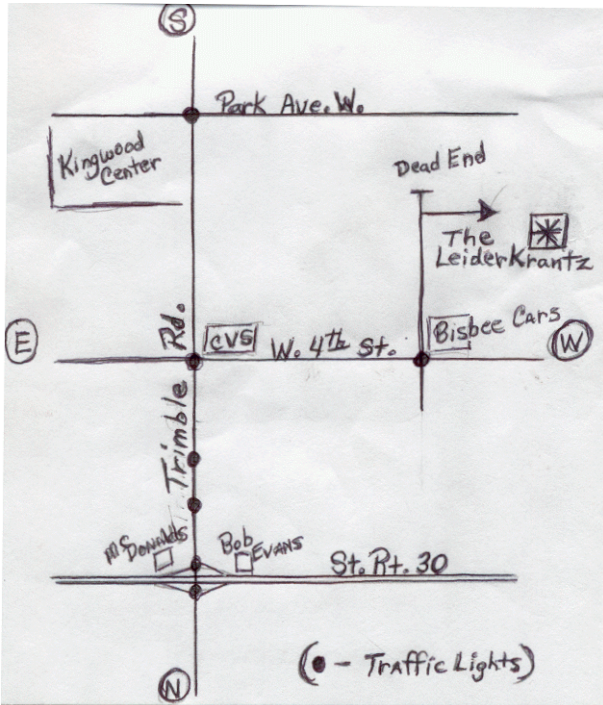 S
Park Ave. W.
Kingwood
Center
Dead End
The
LeiderKrantz
E
CVS
W. 4th St.
Bisbee Cars
W
Trimble Rd.
McDonalds
Bob
Evans
St. Rt. 30
N
(● - Traffic Lights)